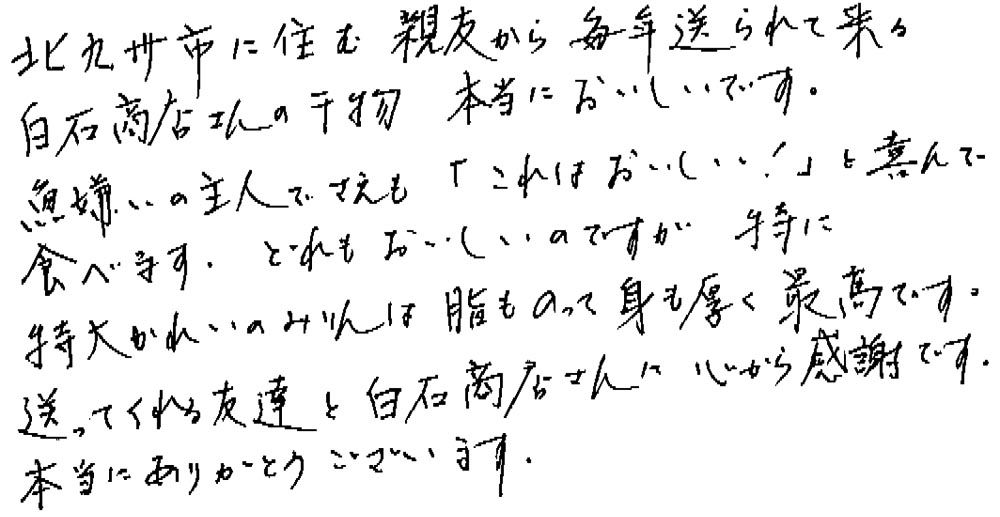 北九州市に住む 親友から 毎年送られて来る
白石商店さんの干物 本当においしいです。
魚嫌いの主人でさえも 「これはおいしい!」と喜んで
食べます. どれもおいしいのですが 特に
特大かれいのみりんは 脂ものって身も厚く最高です。
送ってくれる友達と白石商店さんに 心から感謝です.
本当にありがとうございます.